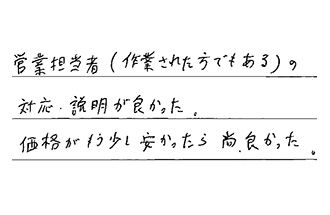 営業担当者(作業された方でもある)の
対応・説明が良かった。
価格がもう少し安かったら尚、良かった。